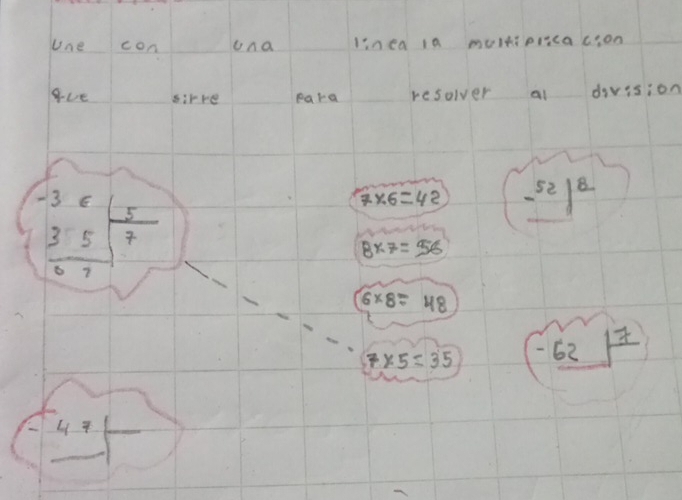 une con una linea la multiplicacion
que sirre para resolver al division
-3 6 5
3 5 7
0 1
7×6=42
8×7=56
6×8= 48
7×5=35
-52 8
-62 7
- 47